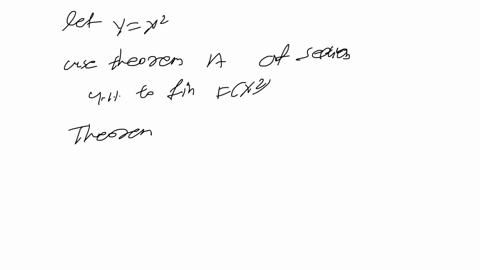 let y = x²
use theorem A of section
4.1.1. to fin E(X²)
Theorem